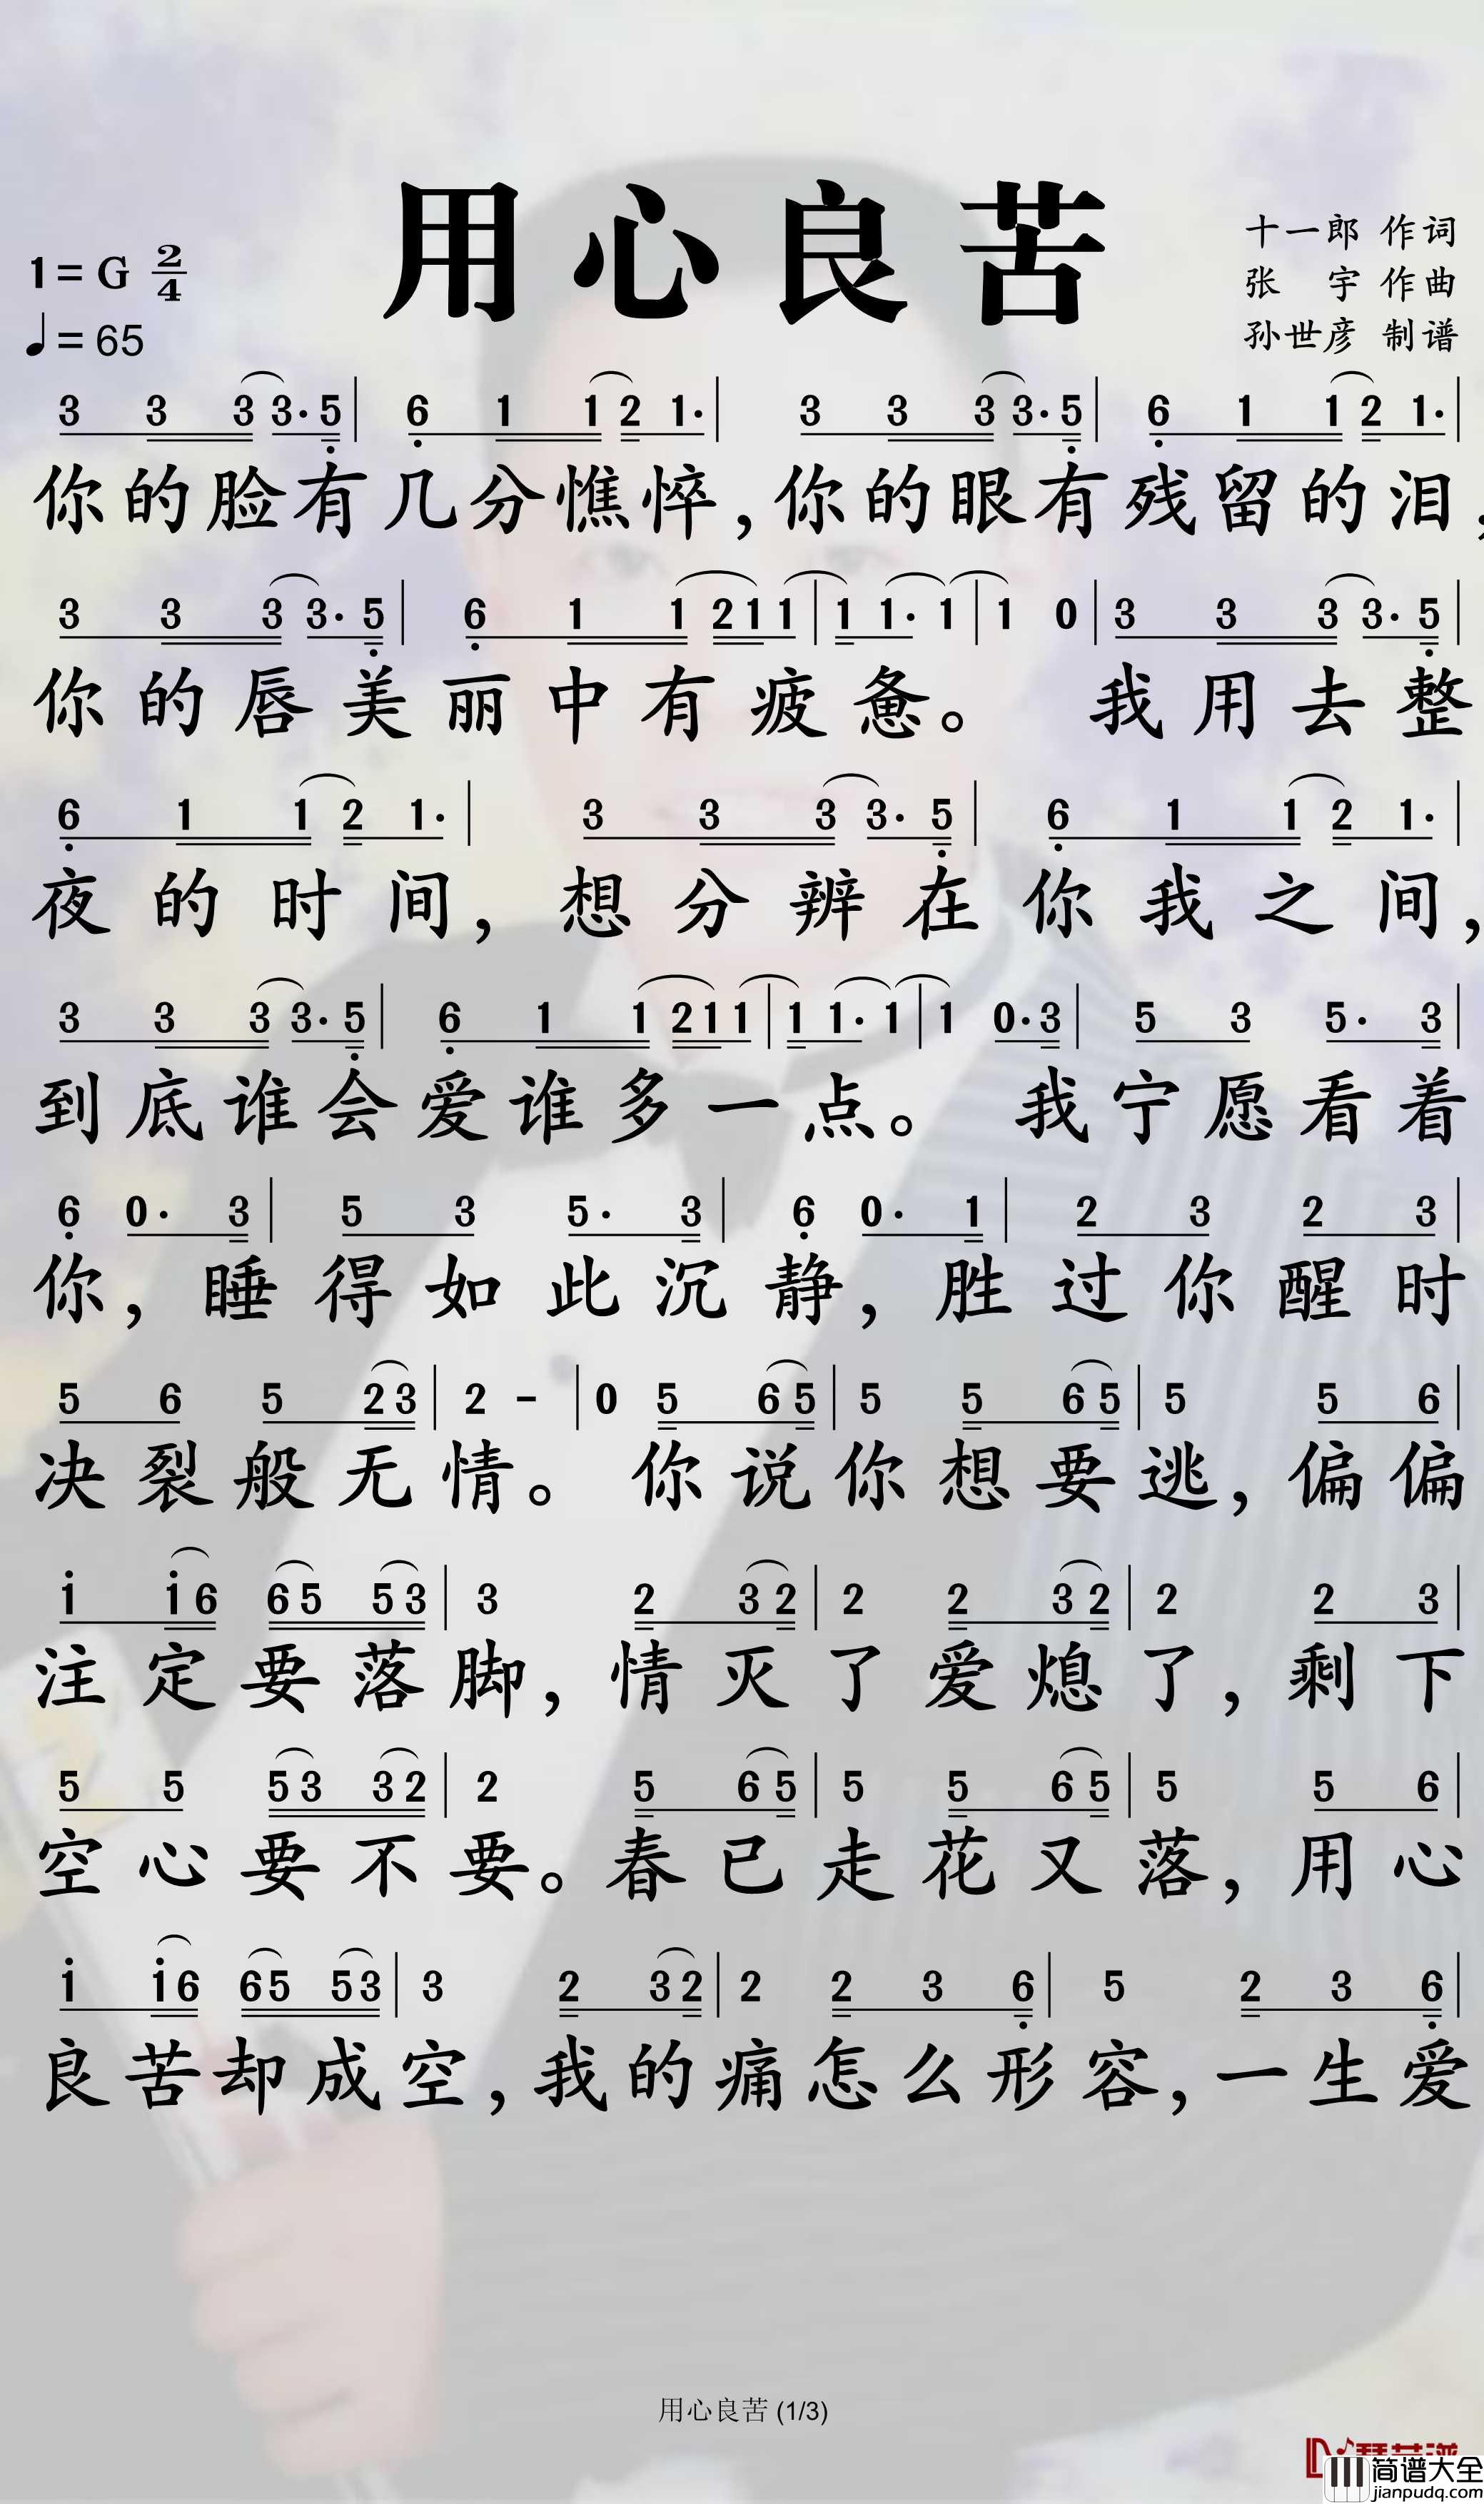 用心良苦
1=G 2/4
♩=65
十一郎 作词
张 宇 作曲
孙世彦 制谱
3 3 3 3· 5 | 6 1 1 2 1· | 3 3 3 3· 5 | 6 1 1 2 1· |
你的脸有几分憔悴，你的眼有残留的泪，
3 3 3 3· 5 | 6 1 1 2 1 1 | 1 1· 1 | 1 0 | 3 3 3 3· 5 |
你的唇美丽中有疲惫。 我用去整
6 1 1 2 1· | 3 3 3 3· 5 | 6 1 1 2 1· |
夜的时间，想分辨在你我之间，
3 3 3 3· 5 | 6 1 1 2 1 1 | 1 1· 1 | 1 0· 3 | 5 3 5· 3 |
到底谁会爱谁多一点。 我宁愿看着
6 0· 3 | 5 3 5· 3 | 6 0· 1 | 2 3 2 3 |
你，睡得如此沉静，胜过你醒时
5 6 5 2 3 | 2 - | 0 5 6 5 | 5 5 6 5 | 5 5 6 |
决裂般无情。你说你想要逃，偏偏
i i 6 6 5 5 3 | 3 2 3 2 | 2 2 3 2 | 2 2 3 |
注定要落脚，情灭了爱熄了，剩下
5 5 5 3 3 2 | 2 5 6 5 | 5 5 6 5 | 5 5 6 |
空心要不要。春已走花又落，用心
i i 6 6 5 5 3 | 3 2 3 2 | 2 2 3 6 | 5 2 3 6 |
良苦却成空，我的痛怎么形容，一生爱
用心良苦 (1/3)
简谱大全
jianpudq.com